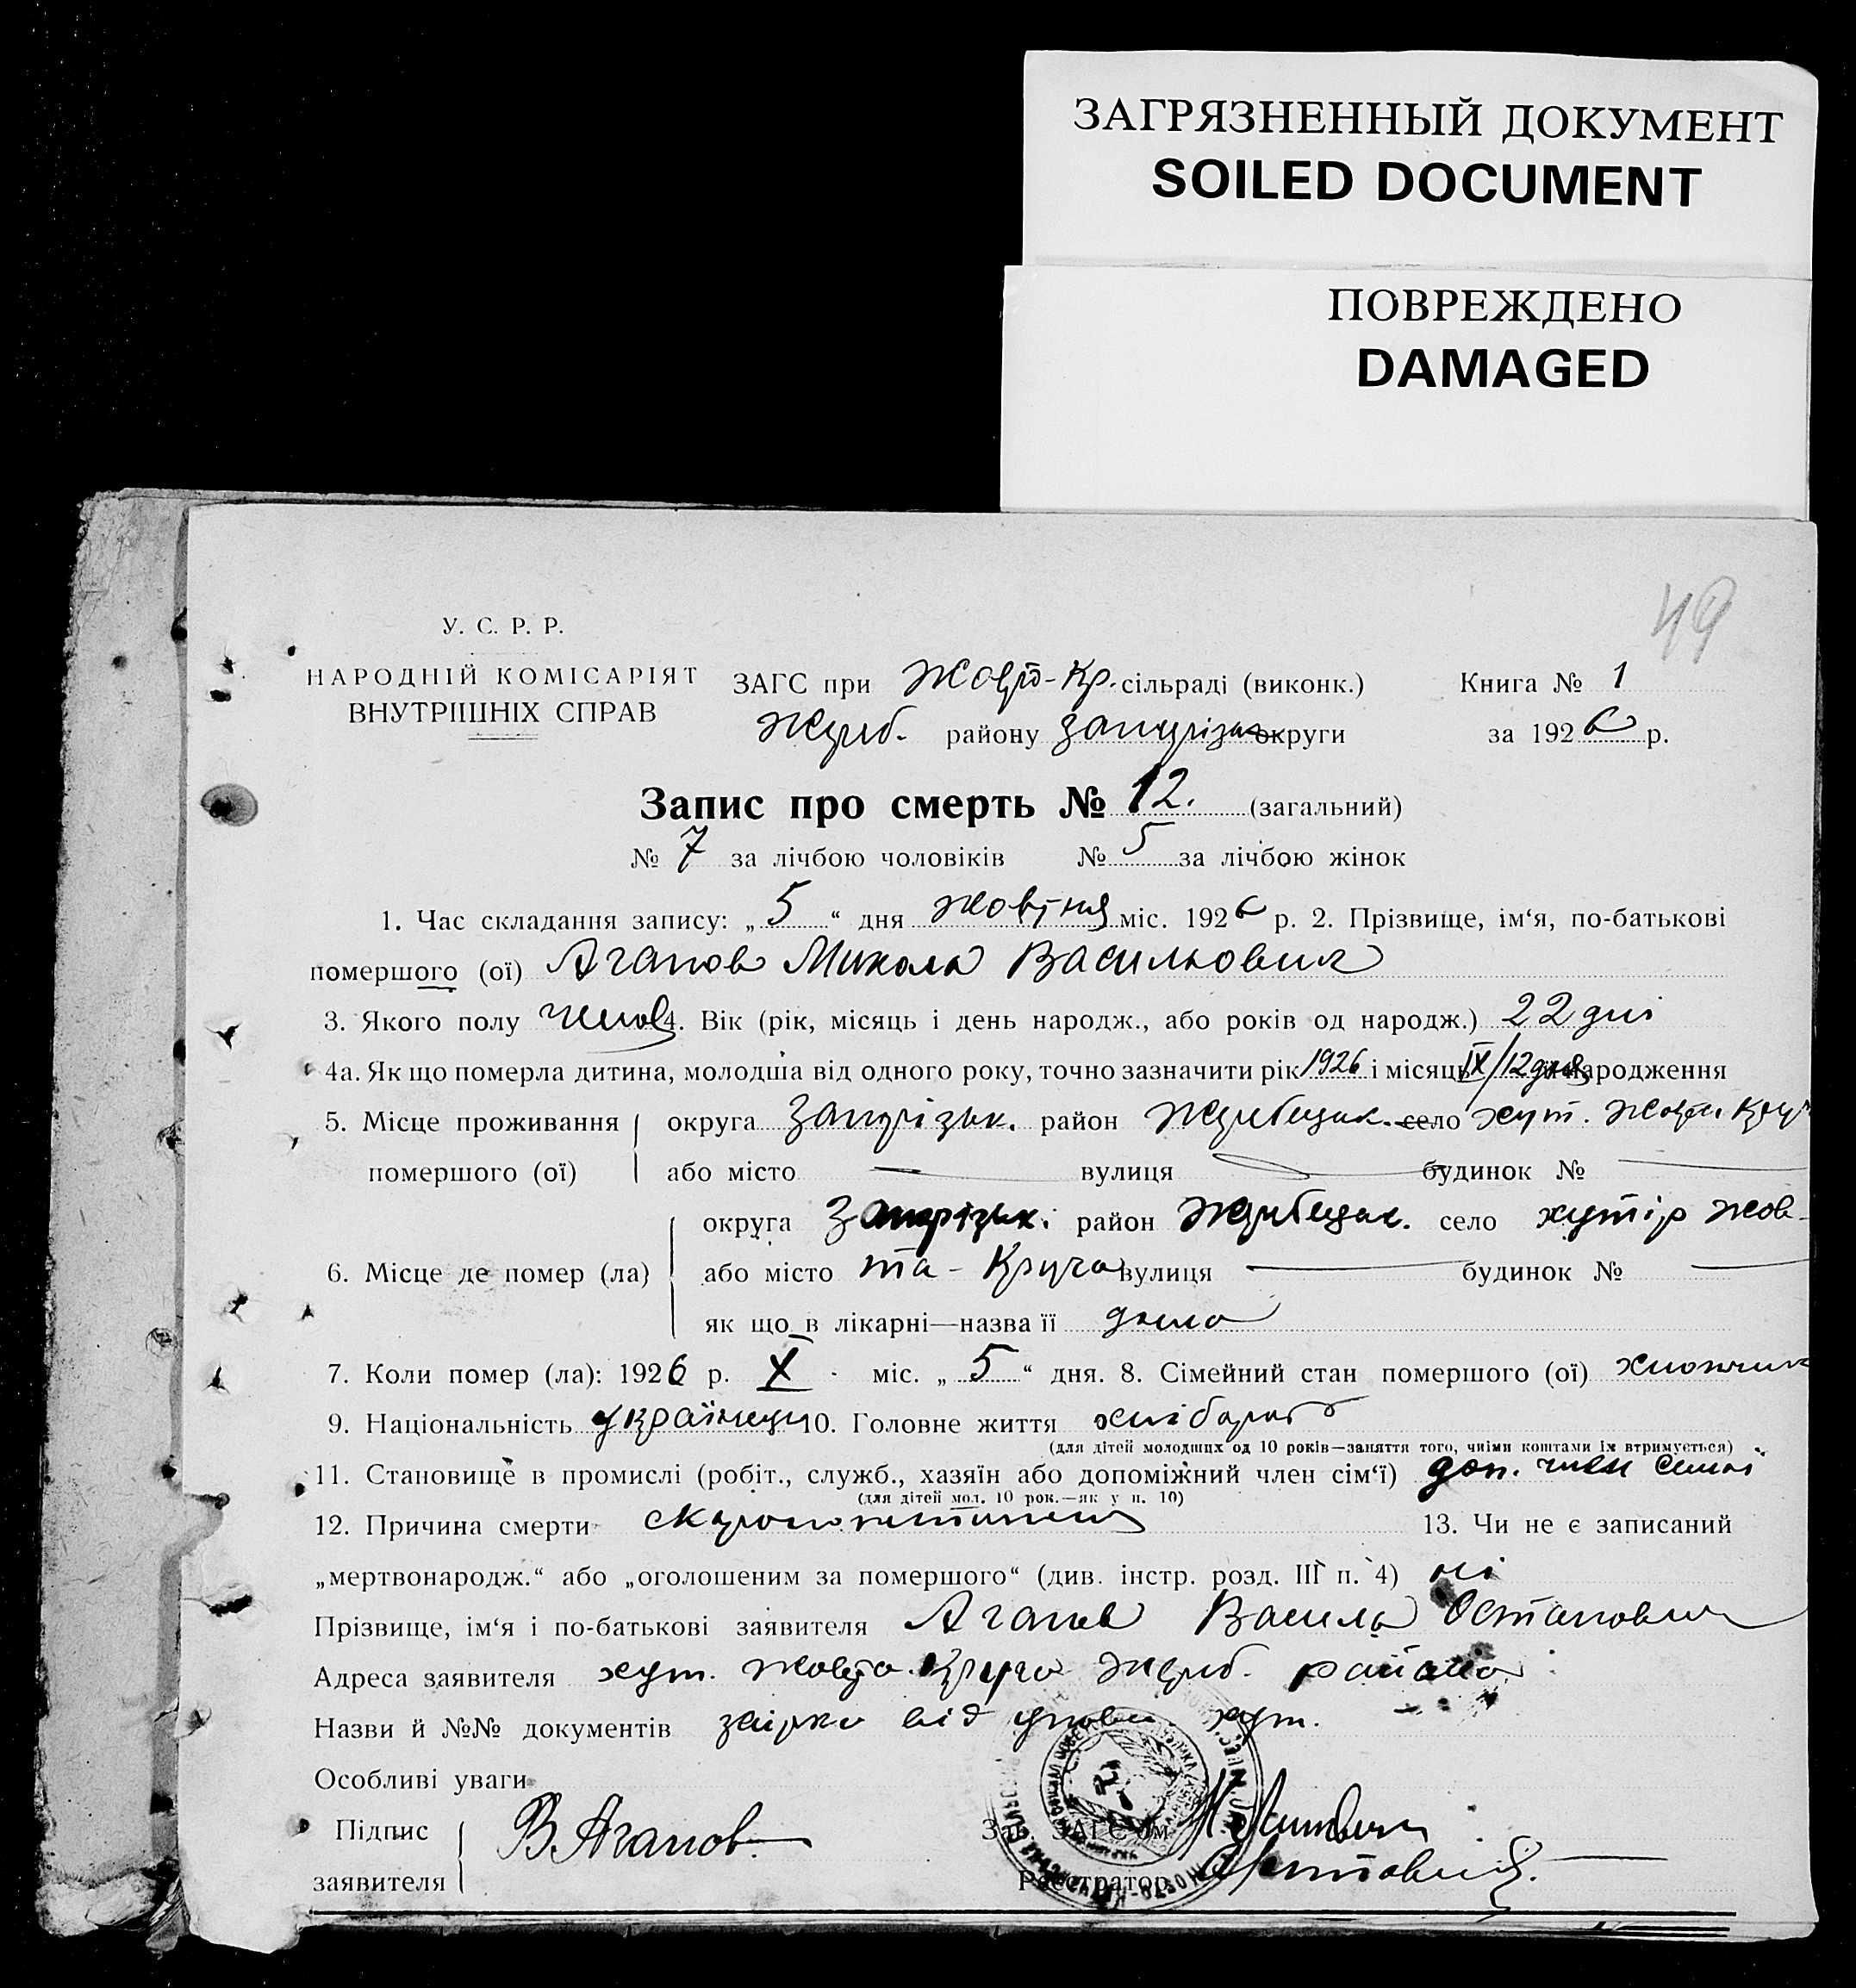 ЗАГРЯЗНЕННЫЙ ДОКУМЕНТ
SOILED DOCUMENT
ПОВРЕЖДЕНО
DAMAGED
49
У. С. Р. Р.
НАРОДНІЙ КОМІСАРІЯТ
ВНУТРІШНІХ СПРАВ
ЗАГС при Жовто-Кр. сільраді (виконк.) Книга № 1
Жереб. району Запоріз округи за 1926 р.
Запис про смерть № 12. (загальний)
№ 7 за лічбою чоловіків № 5 за лічбою жінок
1. Час складання запису: „5“ дня жовтня міс. 1926 р. 2. Прізвище, ім‘я, по-батькові
помершого (ої) Агапов Микола Васильович
3. Якого полу 4. Вік (рік, місяць і день народж., або років од народж.) 22 дні
4а. Як що померла дитина, молодша від одного року, точно зазначити рік 1926 і місяць IX/12 дня народження
5. Місце проживання округа Запорізьк. район Жеребецьк. село хут. Жовта Круч
помершого (ої) або місто — вулиця — будинок № —
округа Запорізьк. район Жеребецьк. село хутір Жов-
6. Місце де помер (ла) або місто та-Круча вулиця — будинок № —
як що в лікарні—назва її дома
7. Коли помер (ла): 1926 р. X міс. „5“ дня. 8. Сімейний стан помершого (ої) хлопчик
9. Національність українец 10. Головне життя хлібороб
(для дітей молодших од 10 років—заняття того, чиїми коштами їх втримується)
11. Становище в промислі (робіт., служб., хазяїн або допоміжний член сім‘ї) доп. член семьі
(для дітей мол. 10 рок.—як у п. 10)
12. Причина смерти 13. Чи не є записаний
„мертвонародж.“ або „оголошеним за помершого“ (див. інстр. розд. III п. 4) ні
Прізвище, ім‘я і по-батькові заявителя Агапов Василь Остапович
Адреса заявителя хут. Жовта Круча Жереб. району
Назви й №№ документів від хут.
Особливі уваги
Підпис В. Агапов Зав. ЗАГС‘ом
заявителя Реєстратор